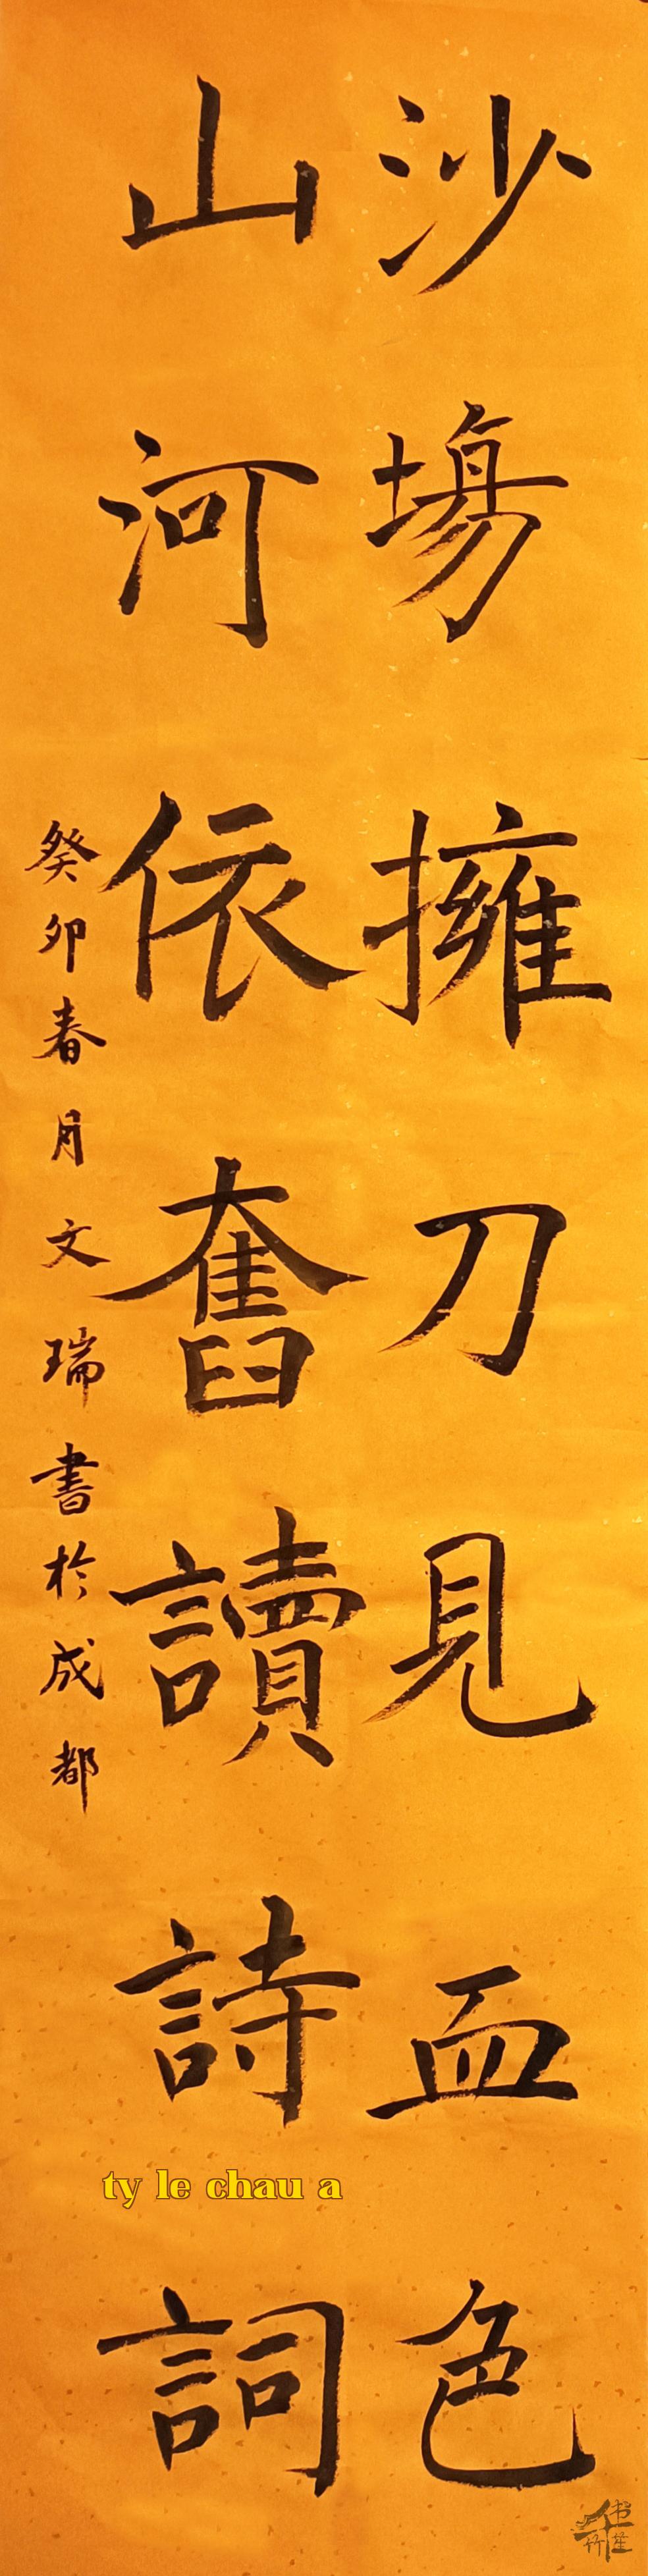 沙塲擁刀見血色
山河依舊讀詩詞
癸卯春月文瑞書於成都
ty le chau a